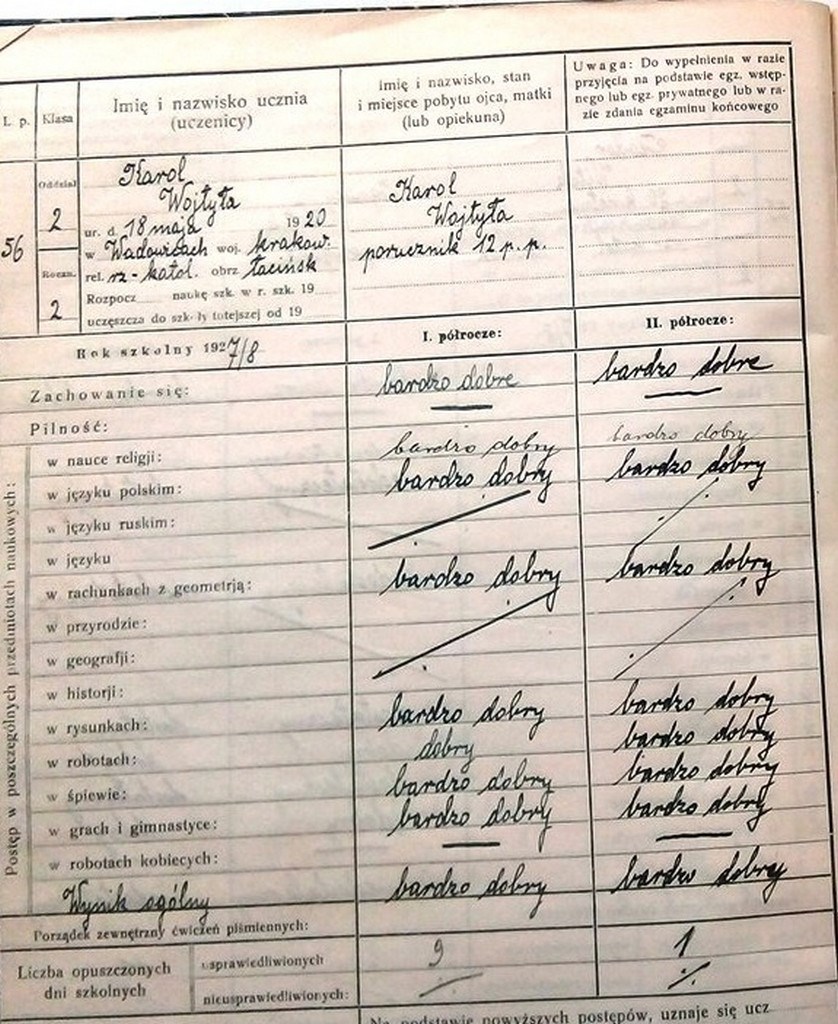 L. p.
Klasa
Imię i nazwisko ucznia
(uczenicy)
Imię i nazwisko, stan
i miejsce pobytu ojca, matki
(lub opiekuna)
Uwaga: Do wypełnienia w razie
przyjęcia na podstawie egz. wstęp-
nego lub egz. prywatnego lub w ra-
zie zdania egzaminu końcowego
56
Oddział
2
Roczn.
2
Karol
Wojtyła
ur. d. 18 maja 1920
w Wadowicach woj. krakow.
rel. rz-katol. obrz. łacińsk
Rozpocz naukę szk. w r. szk. 19
uczęszcza do szkoły tutejszej od 19
Karol
Wojtyła
porucznik 12 p. p.
Rok szkolny 1927/8
I. półrocze:
II. półrocze:
Zachowanie się: bardzo dobre bardzo dobre
Pilność: — —
Postęp w poszczególnych przedmiotach naukowych:
w nauce religji: bardzo dobry bardzo dobry
w języku polskim: bardzo dobry bardzo dobry
w języku ruskim:
w języku
w rachunkach z geometrją: bardzo dobry bardzo dobry
w przyrodzie:
w geografji:
w historji:
w rysunkach: bardzo dobry bardzo dobry
w robotach: dobry bardzo dobry
w śpiewie: bardzo dobry bardzo dobry
w grach i gimnastyce: bardzo dobry bardzo dobry
w robotach kobiecych: — —
Wynik ogólny bardzo dobry bardzo dobry
Porządek zewnętrzny ćwiczeń piśmiennych:
Liczba opuszczonych
dni szkolnych
usprawiedliwionych 9 1
nieusprawiedliwionych: ·/· ·/·
Na podstawie powyższych postępów, uznaje się ucz